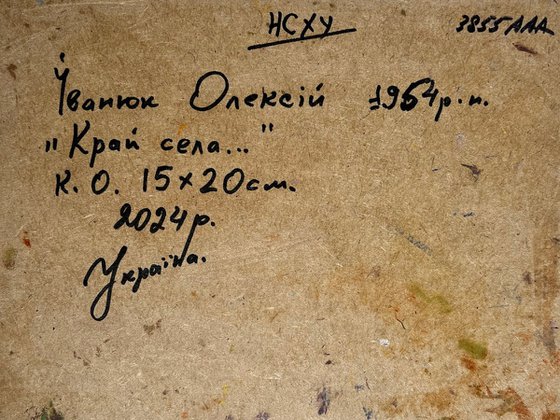 НСХУ 3855AAA
Іванюк Олексій 1954р.н.
"Край села..."
К. О. 15×20см.
2024р.
Україна.